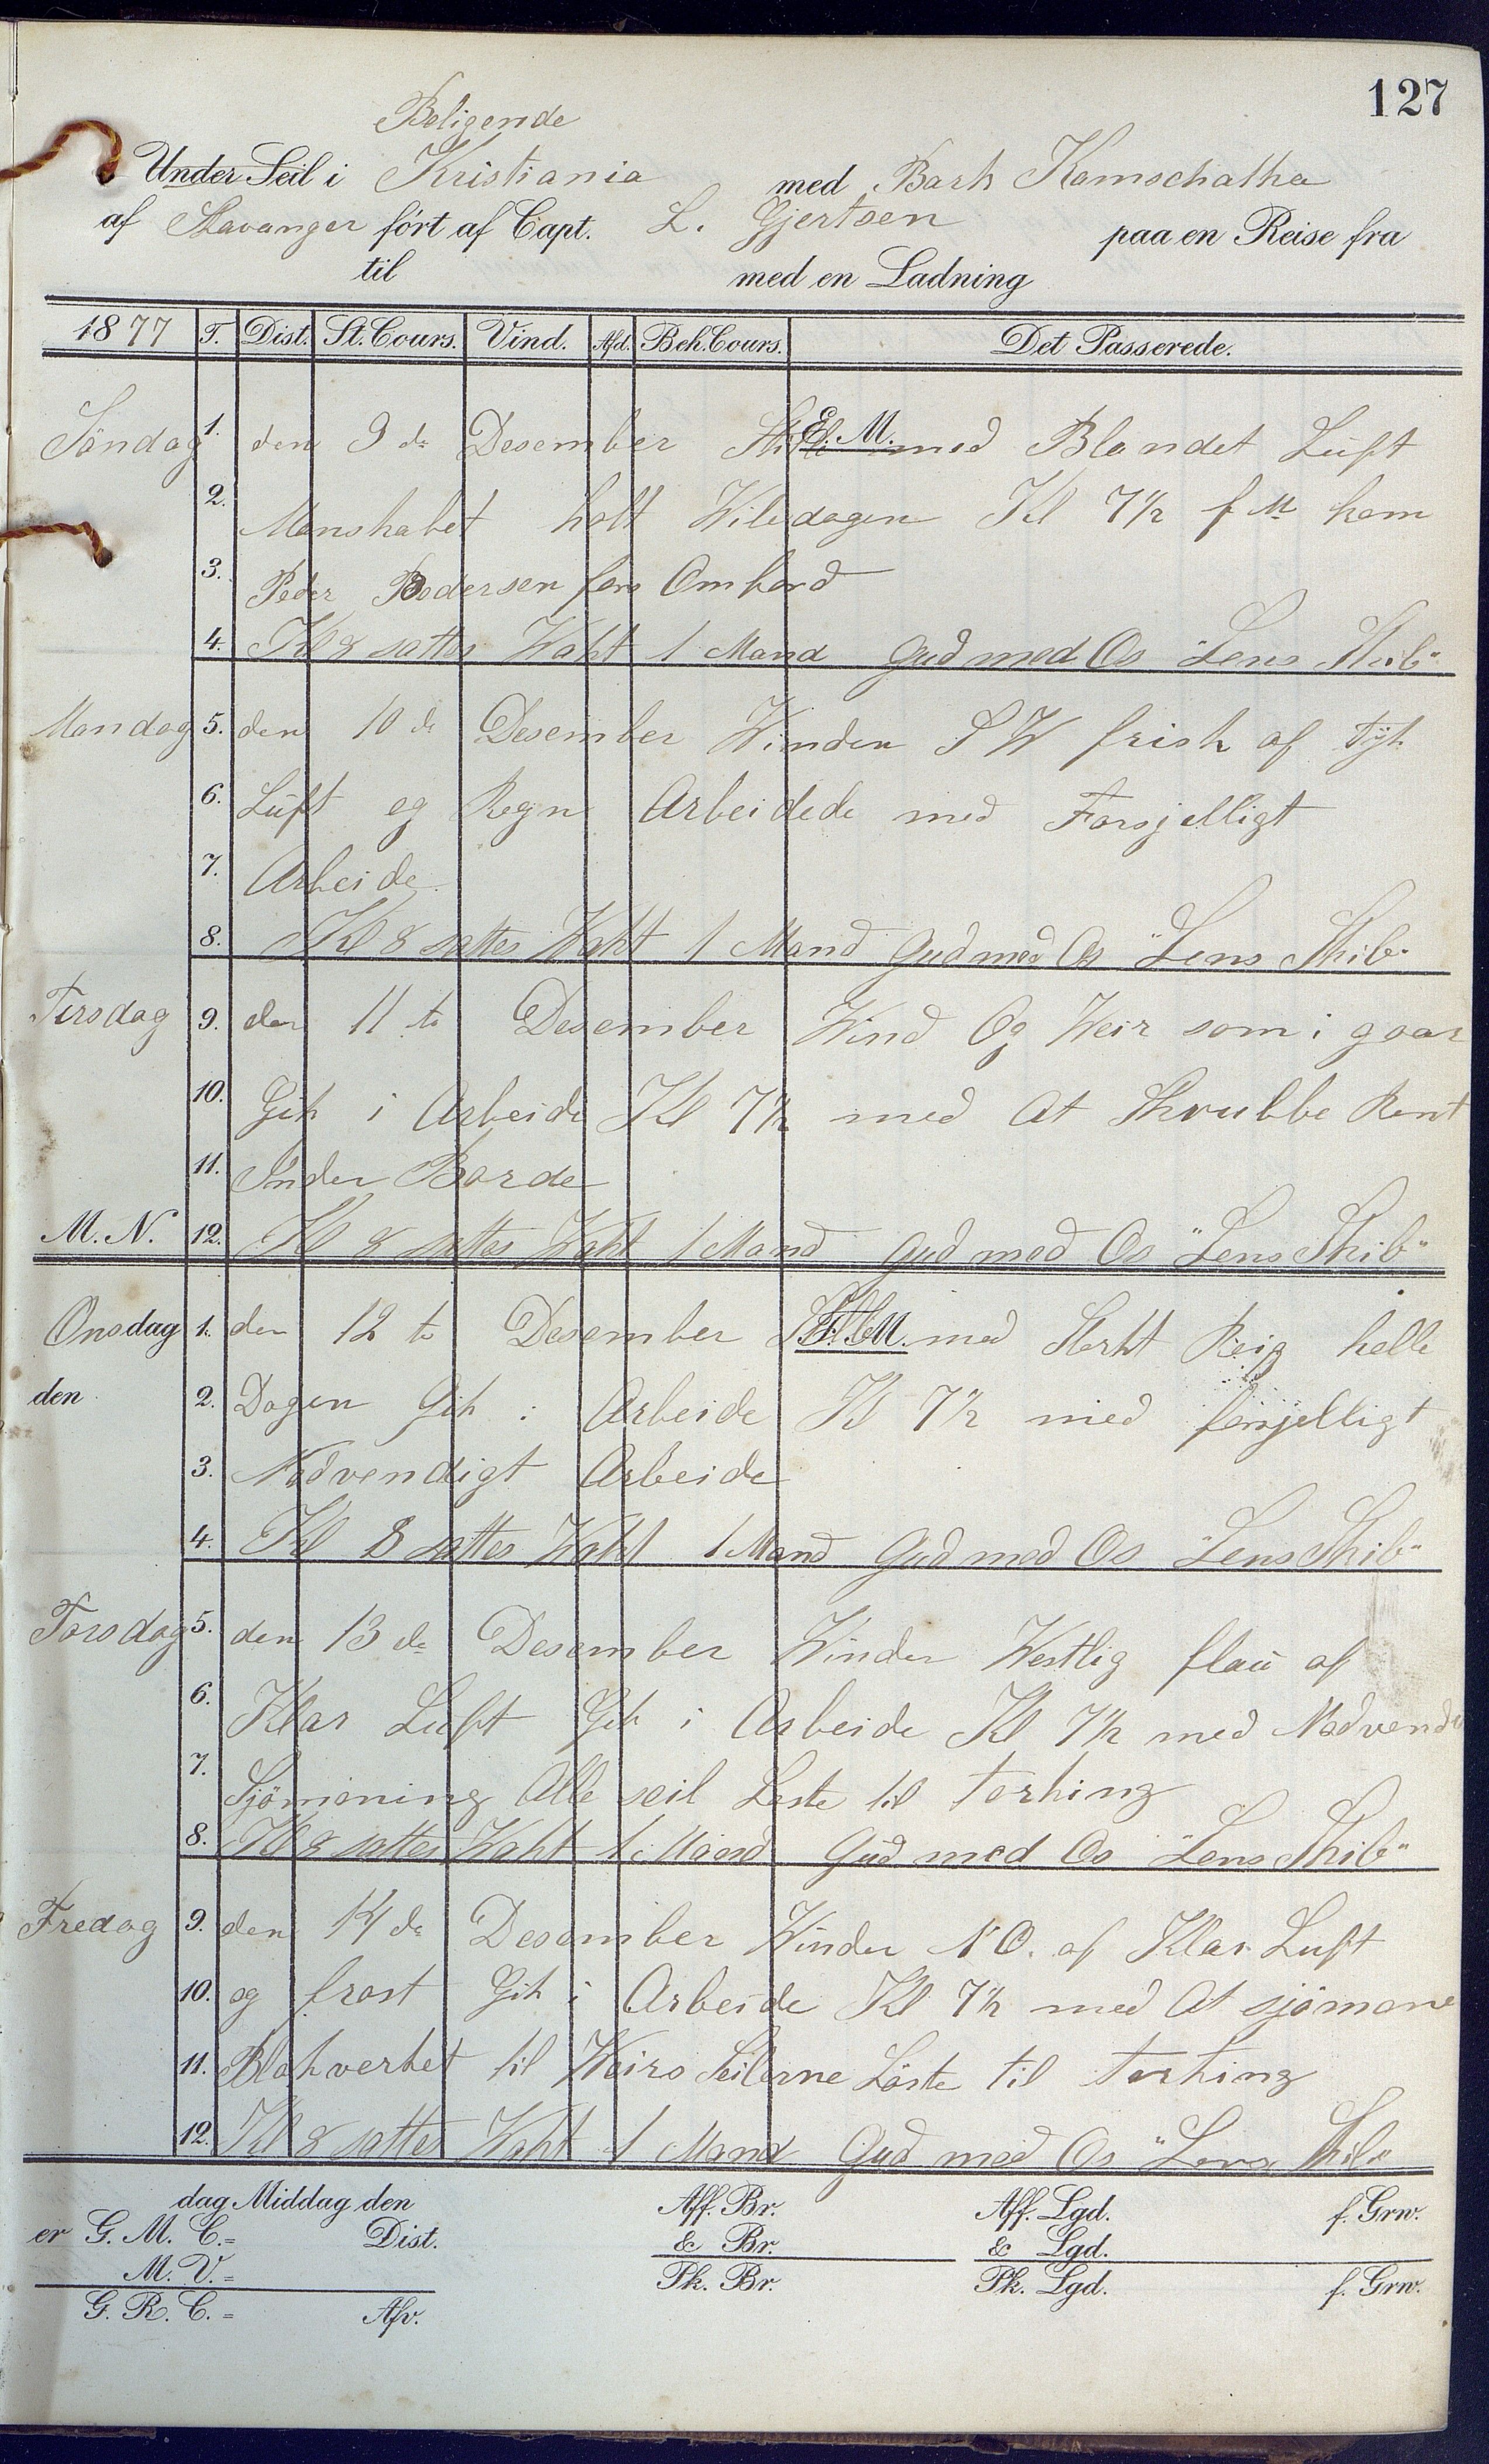 127
Beligende
Under Seil i Kristiania med Bark Kamschatka
af Stavanger ført af Capt. L. Gjertsen paa en Reise fra
til med en Ladning
1877 T. Dist. St. Cours. Vind. Afd. Beh. Cours. Det Passerede.
Söndag 1. den 9 de Desember Stile E. M. med Blandet Luft
2. Manskabet holt Wiledagen Kl 7 1/2 f M kom
3. Peder Pedersen Ombord
4. Kl 8 sattes Wakt 1 Mand Gud med Os "Lens Skib"
Mandag 5. den 10 de Desember Winden SW frisk af tyk
6. Luft og Regn Arbeidede med Forsjelligt
7. Arbeide
8. Kl 8 sattes Wakt 1 Mand Gud med Os "Lens Skib"
Tirsdag 9. den 11 te Desember Wind Og Weir som i gaar
10. Gik i Arbeide Kl 7 1/2 med At Skrubbe Rent
11. Inden Borde
M. N. 12. Kl 8 sattes Wakt 1 Mand Gud med Os "Lens Skib"
Onsdag 1. den 12 te Desember F. M. med Sterkt Reig helle
den 2. Dagen Gik i Arbeide Kl 7 1/2 med forsjelligt
3. Nödvendigt Arbeide
4. Kl 8 sattes Wakt 1 Mand Gud med Os "Lens Skib"
Torsdag 5. den 13 de Desember Winden Westlig flau af
6. Klar Luft Gik i Arbeide Kl 7 1/2 med Nödvend
7. Sjömaning Alle seil Löste til torking
8. Kl 8 sattes Wakt 1 Mand Gud med Os "Lens Skib"
Fredag 9. den 14 de Desember Winden N O. af Klar Luft
10. og frost Gik i Arbeide Kl 7 1/2 med At sjömane
11. Blokverket til Weirs Seilerne Löste til torking
12. Kl 8 sattes Wakt 1 Mand Gud med Os "Lens Skib"
dag Middag den Aff. Br. Aff. Lgd. f. Grw.
er G. M. C. = Dist. & Br. & Lgd.
M. V. = Pk. Br. Pk. Lgd. f. Grw.
G. R. C. = Afv.